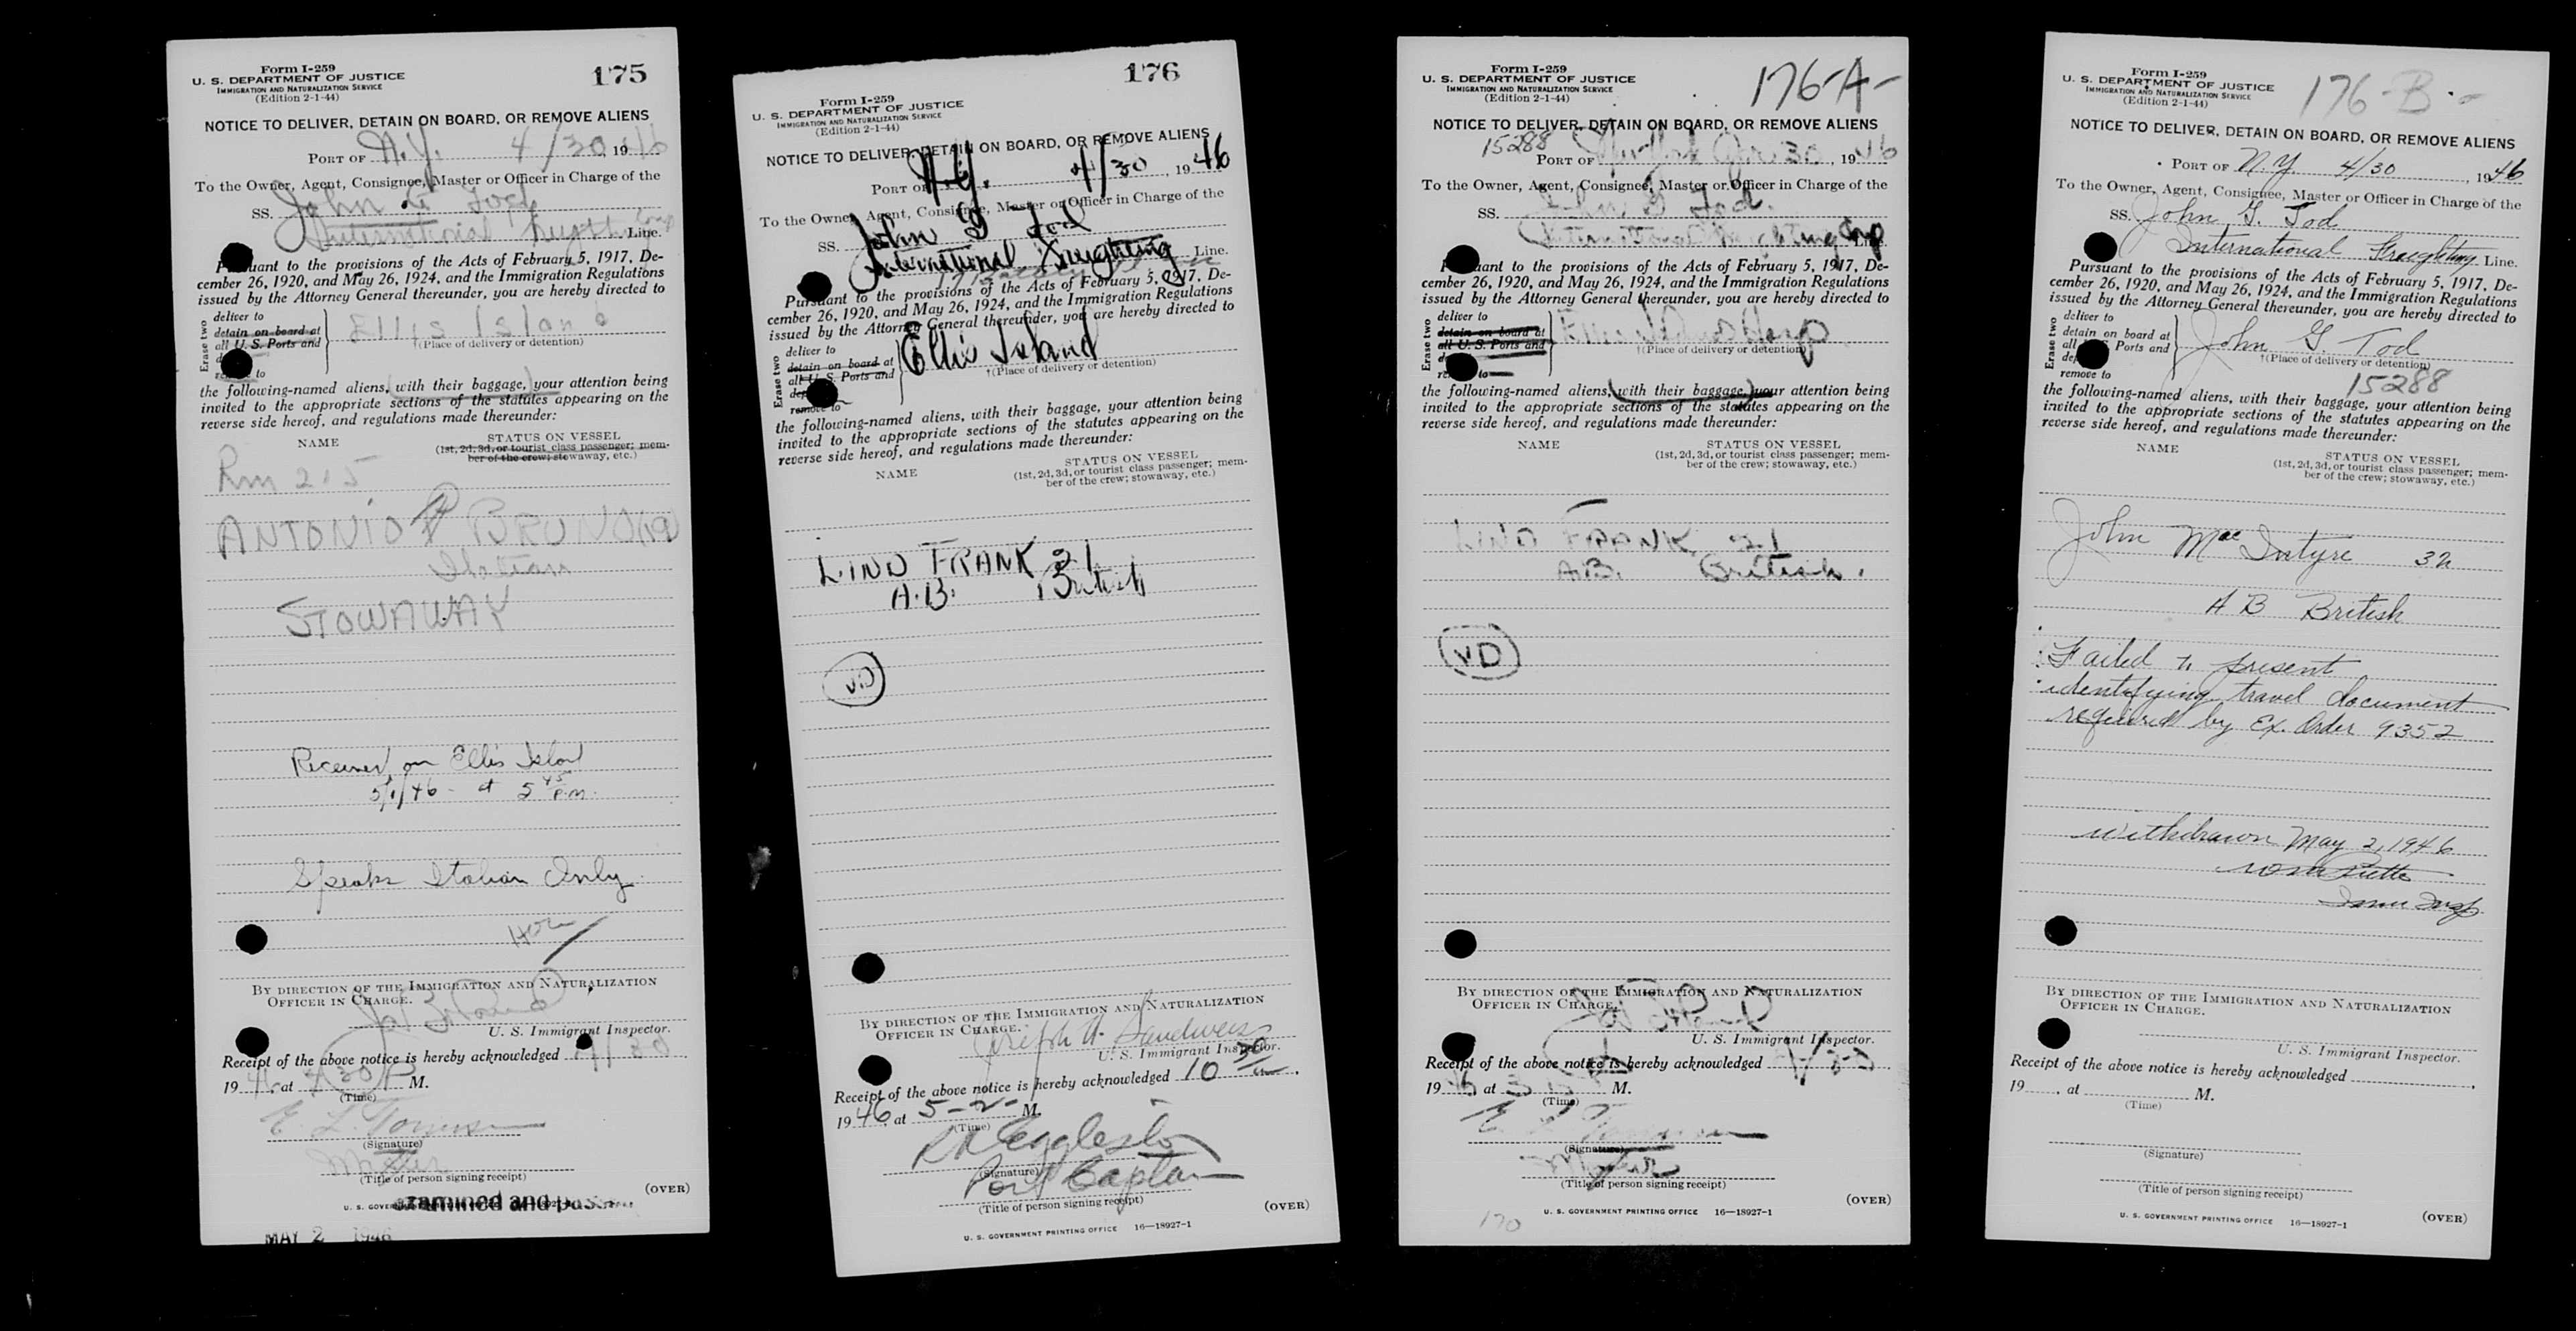 Form I-259
U. S. DEPARTMENT OF JUSTICE
IMMIGRATION AND NATURALIZATION SERVICE
(Edition 2-1-44)
175
NOTICE TO DELIVER, DETAIN ON BOARD, OR REMOVE ALIENS
PORT OF N.Y. 4/30, 1946
To the Owner, Agent, Consignee, Master or Officer in Charge of the
SS. John G Tod
International Line.
Pursuant to the provisions of the Acts of February 5, 1917, De-
cember 26, 1920, and May 26, 1924, and the Immigration Regulations
issued by the Attorney General thereunder, you are hereby directed to
Erase two
deliver to
detain on board at
all U. S. Ports and
to
Ellis Island
†(Place of delivery or detention)
the following-named aliens, (with their baggage,) your attention being
invited to the appropriate sections of the statutes appearing on the
reverse side hereof, and regulations made thereunder:
NAME
STATUS ON VESSEL
(1st, 2d, 3d, or tourist class passenger; mem-
ber of the crew; stowaway, etc.)
Rm 215
ANTONIO BRUNO (19)
Italian
STOWAWAY
Received on Ellis Island
5/1/46 - at 5 45 P.m.
Speaks Italian Only
BY DIRECTION OF THE IMMIGRATION AND NATURALIZATION
OFFICER IN CHARGE.
U. S. Immigrant Inspector.
Receipt of the above notice is hereby acknowledged 4/30
1946 at 4 30 P M.
(Time)
(Signature)
Master
(Title of person signing receipt)
(OVER)
U. S. GOVER
MAY 2 1946
Form I-259
U. S. DEPARTMENT OF JUSTICE
IMMIGRATION AND NATURALIZATION SERVICE
(Edition 2-1-44)
176
NOTICE TO DELIVER, DETAIN ON BOARD, OR REMOVE ALIENS
PORT OF N.Y. 4/30, 1946
To the Owner, Agent, Consignee, Master or Officer in Charge of the
SS. John G Tod
International Freighting Line.
Pursuant to the provisions of the Acts of February 5, 1917, De-
cember 26, 1920, and May 26, 1924, and the Immigration Regulations
issued by the Attorney General thereunder, you are hereby directed to
Erase two
deliver to
detain on board at
all U. S. Ports and
remove to
Ellis Island
†(Place of delivery or detention)
the following-named aliens, with their baggage, your attention being
invited to the appropriate sections of the statutes appearing on the
reverse side hereof, and regulations made thereunder:
NAME
STATUS ON VESSEL
(1st, 2d, 3d, or tourist class passenger; mem-
ber of the crew; stowaway, etc.)
LIND FRANK 21
A.B. British
V.D
BY DIRECTION OF THE IMMIGRATION AND NATURALIZATION
OFFICER IN CHARGE.
U. S. Immigrant Inspector.
Receipt of the above notice is hereby acknowledged 10 30
1946, at 5-2- M.
(Time)
(Signature)
Port Captain
(Title of person signing receipt)
(OVER)
U. S. GOVERNMENT PRINTING OFFICE 16—18927-1
Form I-259
U. S. DEPARTMENT OF JUSTICE
IMMIGRATION AND NATURALIZATION SERVICE
(Edition 2-1-44)
176-A-
NOTICE TO DELIVER, DETAIN ON BOARD, OR REMOVE ALIENS
15288
PORT OF New York Apr 30, 1946
To the Owner, Agent, Consignee, Master or Officer in Charge of the
SS. John G Tod.
International Freighting Corp Line.
Pursuant to the provisions of the Acts of February 5, 1917, De-
cember 26, 1920, and May 26, 1924, and the Immigration Regulations
issued by the Attorney General thereunder, you are hereby directed to
Erase two
deliver to
detain on board at
all U. S. Ports and
to
†(Place of delivery or detention)
the following-named aliens, (with their baggage,) your attention being
invited to the appropriate sections of the statutes appearing on the
reverse side hereof, and regulations made thereunder:
NAME
STATUS ON VESSEL
(1st, 2d, 3d, or tourist class passenger; mem-
ber of the crew; stowaway, etc.)
LIND FRANK 21
A.B. British.
VD
BY DIRECTION OF THE IMMIGRATION AND NATURALIZATION
OFFICER IN CHARGE.
U. S. Immigrant Inspector.
Receipt of the above notice is hereby acknowledged
1946 at M.
(Time)
(Signature)
(Title of person signing receipt)
(OVER)
170
U. S. GOVERNMENT PRINTING OFFICE 16—18927-1
Form I-259
U. S. DEPARTMENT OF JUSTICE
IMMIGRATION AND NATURALIZATION SERVICE
(Edition 2-1-44)
176-B-
NOTICE TO DELIVER, DETAIN ON BOARD, OR REMOVE ALIENS
PORT OF N.Y. 4/30, 1946
To the Owner, Agent, Consignee, Master or Officer in Charge of the
SS. John G. Tod
International Freighting Line.
Pursuant to the provisions of the Acts of February 5, 1917, De-
cember 26, 1920, and May 26, 1924, and the Immigration Regulations
issued by the Attorney General thereunder, you are hereby directed to
Erase two
deliver to
detain on board at
all Ports and
remove to
John G. Tod
†(Place of delivery or detention)
15288
the following-named aliens, with their baggage, your attention being
invited to the appropriate sections of the statutes appearing on the
reverse side hereof, and regulations made thereunder:
NAME
STATUS ON VESSEL
(1st, 2d, 3d, or tourist class passenger; mem-
ber of the crew; stowaway, etc.)
John MacIntyre 32
A B British
Failed to present
identifying travel document
required by Ex. Order 9352
withdrawn May 2, 1946
Imm Insp.
BY DIRECTION OF THE IMMIGRATION AND NATURALIZATION
OFFICER IN CHARGE.
U. S. Immigrant Inspector.
Receipt of the above notice is hereby acknowledged
19 , at M.
(Time)
(Signature)
(Title of person signing receipt)
(OVER)
U. S. GOVERNMENT PRINTING OFFICE 16—18927-1